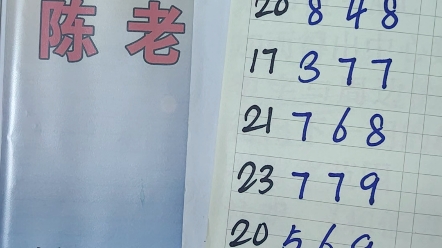 陈老
20 8 4 8
17 3 7 7
21 7 6 8
23 7 7 9
20 5 6 9